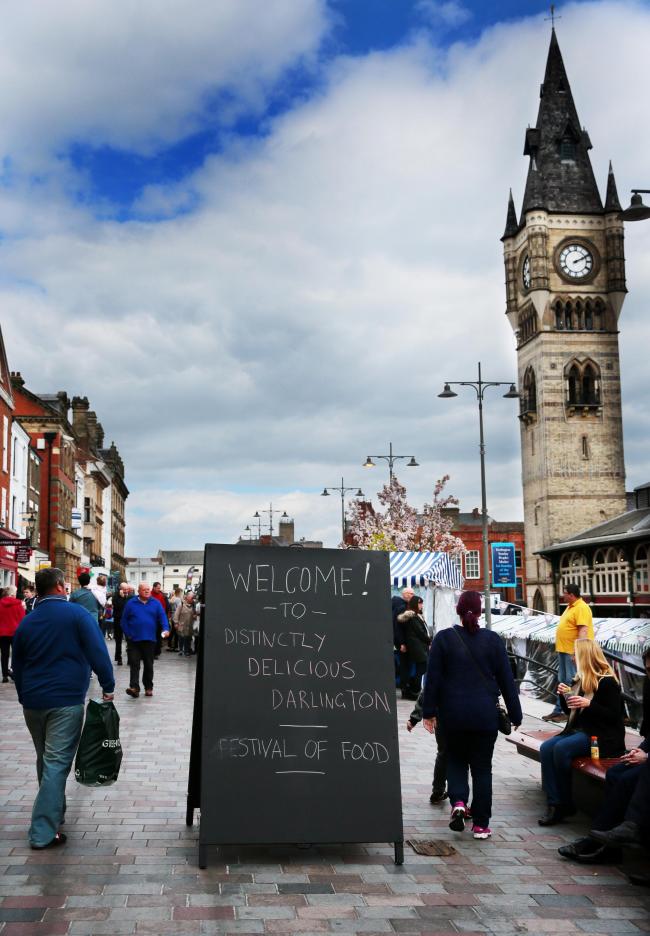 WELCOME!
- TO -
DISTINCTLY
DELICIOUS
DARLINGTON
FESTIVAL OF FOOD